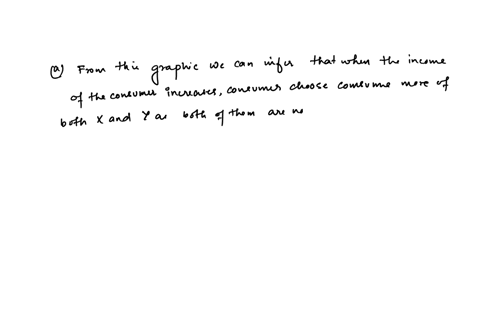 (a) From this graphic we can infer that when the income
of the consumer increases, consumer choose comsume more of
both X and Y as both of them are no